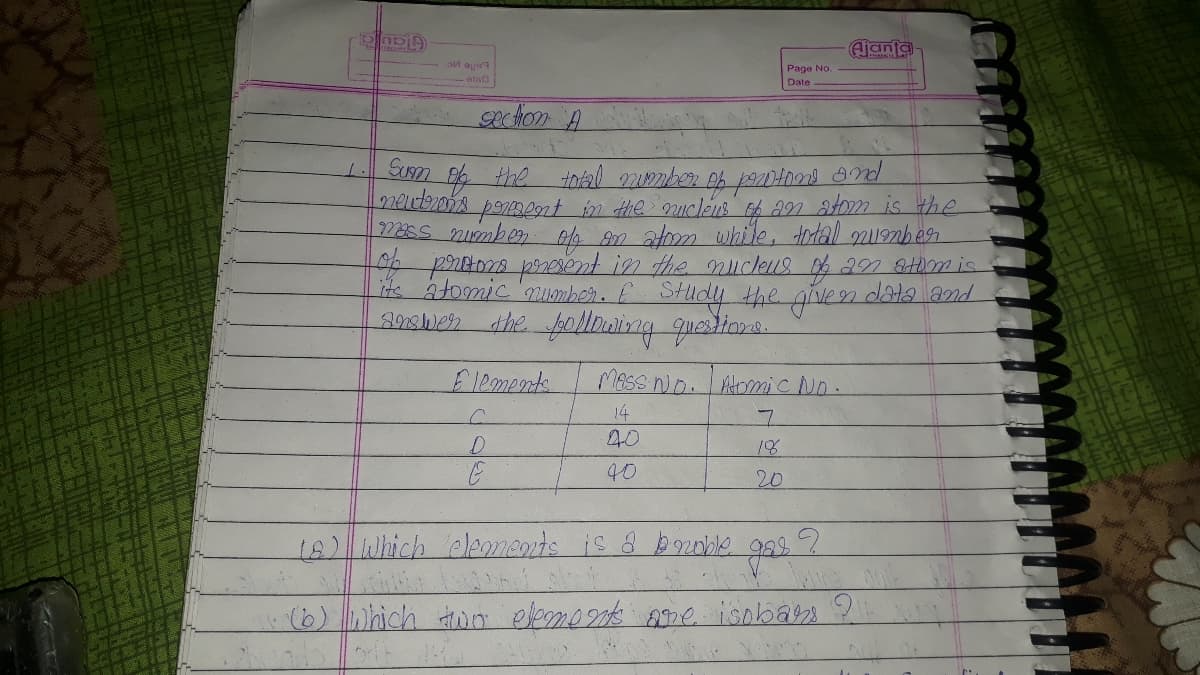 Ajanta
Page No.
Date
section A
1. Sum of the total number of protons and
neutrons present in the nucleus of an atom is the
mass number of an atom while, total number
of protons present in the nucleus of an atom is
its atomic number. Study the given data and
answer the following questions.
Elements Mass No. Atomic No.
C 14 7
D 40 18
E 40 20
(a) Which elements is a noble gas?
(b) Which two elements are isobars?